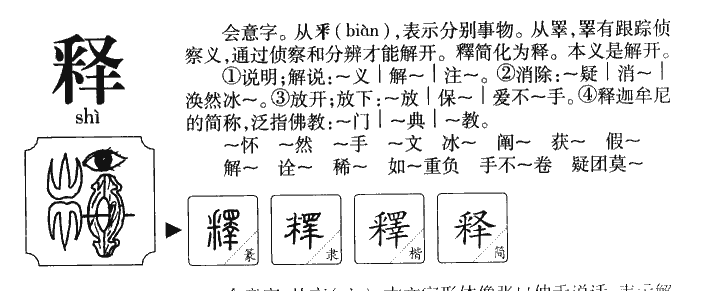 释
shì
会意字。从釆(biàn),表示分别事物。从睪,睪有跟踪侦
察义,通过侦察和分辨才能解开。釋简化为释。本义是解开。
①说明;解说:～义｜解～｜注～。②消除:～疑｜消～｜
涣然冰～。③放开;放下:～放｜保～｜爱不～手。④释迦牟尼
的简称,泛指佛教:～门｜～典｜～教。
～怀 ～然 ～手 ～文 冰～ 阐～ 获～ 假～
解～ 诠～ 稀～ 如～重负 手不～卷 疑团莫～
釋 篆
釋 隶
釋 楷
释 简